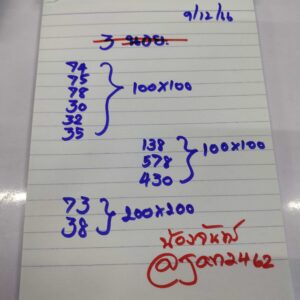 9/12/66
3 นอย.
74
75
78
30
32
35
100x100
138
578
430
100x100
73
38
200x200
น้องจันทร์
@jan2462